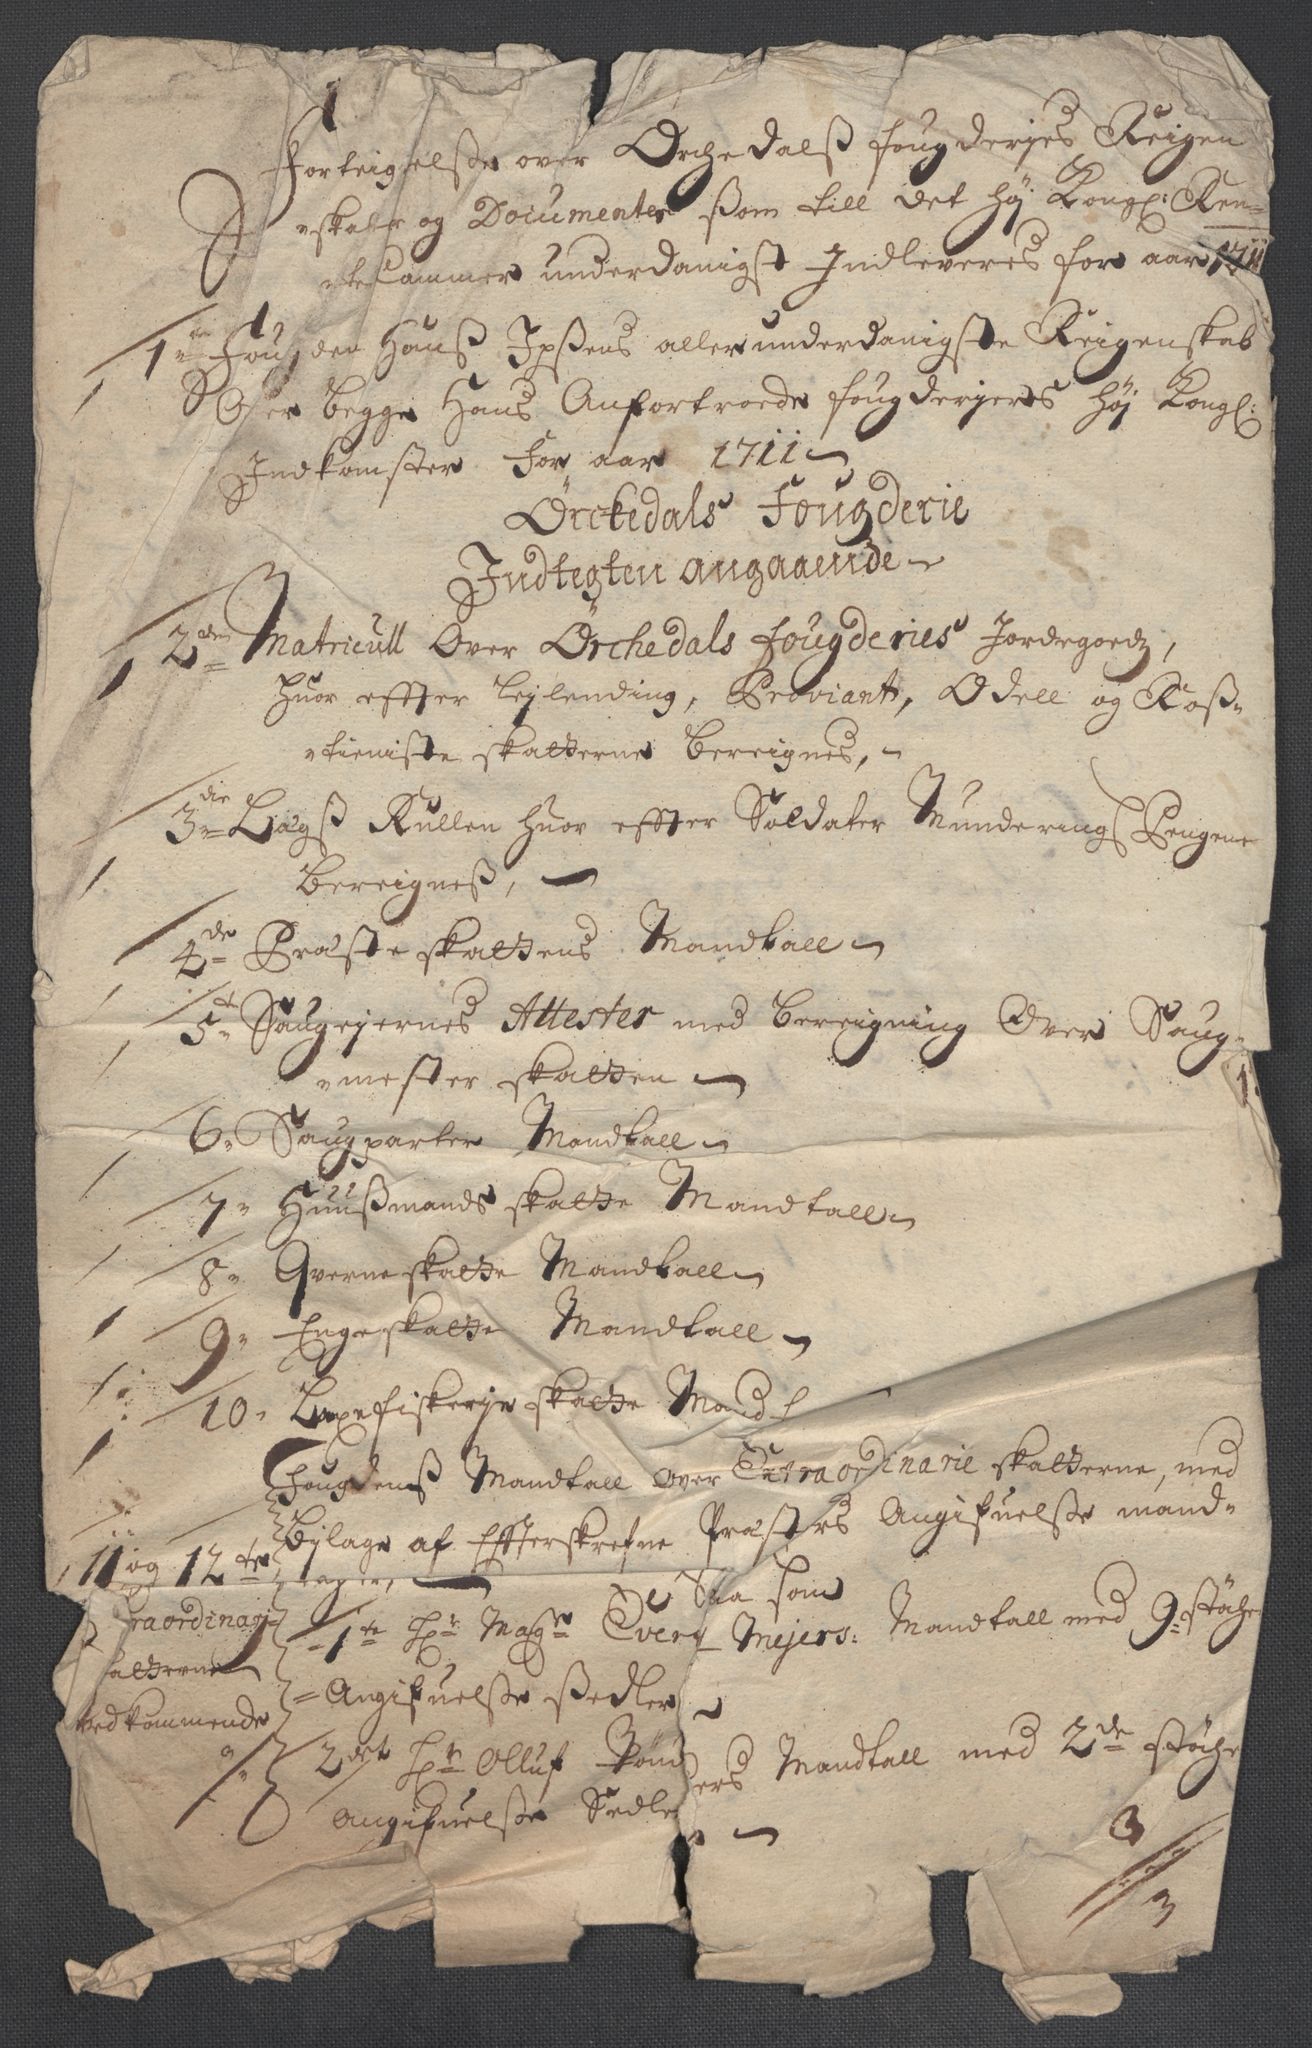 Forteignelsse over Ørchedalss fougderjes Reigen
"skaber og Documenter ssom till det høj Kongl: Ren=
"tecammer underdanigst Indleveres for aar 1711
1te Fougden Hanss Ipssens allerunderdanigste Reigenskab
Over begge Hans Anfortroede fougderjers høj Kongl:
Indkomster for aar 1711
Örckedals Fougderie
Indtegten angaaende
2den Matricull Over Örchedals fougderies Jordegoedz,
huor effter Lejlending, Proviant, Odell og Ross=
"tieniste skatterne bereignes,
3die Lægss Rullen huor effter Soldater Munderings Pengene
bereigness,
4de Præste skattens Mandtall
5te Saugejernes Attester med bereigning Over Saug=
"mester skatten
6. Saugparter Mandtall
7. Huussmands skatte Mandtall
8. Qverneskatte Mandtall
9. Engeskatte Mandtall
10. Laxefiskerje skatte Mandt
Fougdenss Mandtall over Extraordinarie skatterne, med
Bilage af Effterskrefne Præsters Angifuelsse mand=
11 og 12te
Saa som
raordinarj
atterne
vedkommende
1te Hr: Magr: Evert Mejers: Mandtall med 9. støcher
Angifuelsse ssedler
2det Hr: Olluf Tønd ers Mandtall med 2de støcher
Angifuelsse Sedler
3
3
1